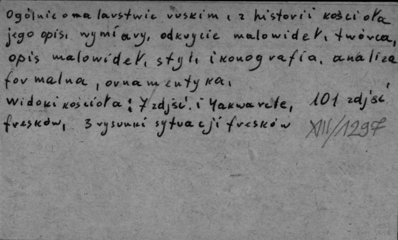 Ogólnie o malarstwie ruskim, z historii kościoła
jego opis, wymiary, odkrycie malowideł, twórca,
opis malowideł, styl, ikonografia, analiza
formalna, ornamentyka,
Widoki kościoła: 7 zdjęć. i 4 akwarele, 101 zdjęć
fresków, 3 rysunki sytuacji fresków
XIII/1297